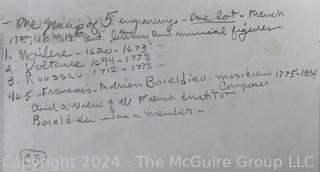 - One group of 5 engravings - One lot - French
17th, 18th + 19th Cent. literary and musical figures
1. Moliere - 1620 - 1673 -
2. Voltaire 1694 - 1778 -
3. Roussau 1712 - 1778 -
4+5 - Francois - Adrien Boieldieu - musician 1775-1834
Composer
and a view of the French Institut
Boieldieu was a member -
45
Copyright 2024 - The McGuire Group LLC